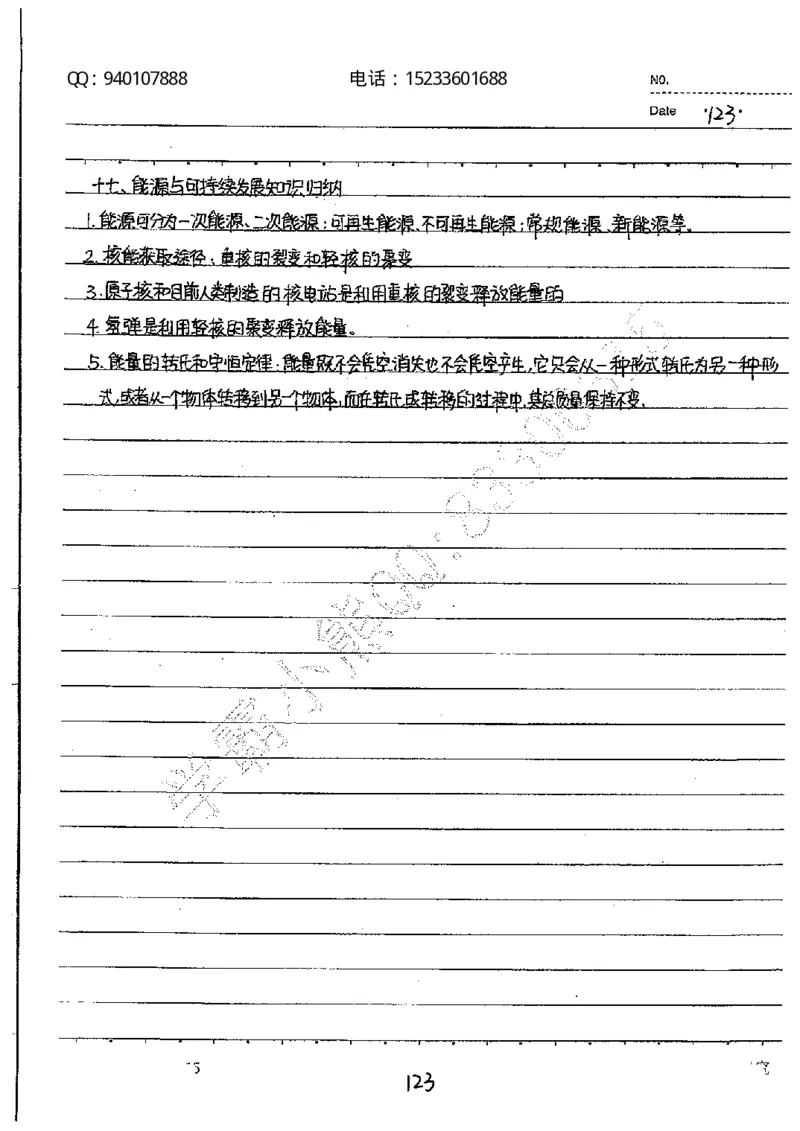 QQ：940107888 电话：15233601688 NO.
Date ·123·
十七、能源与可持续发展知识归纳
1.能源可分为一次能源、二次能源；可再生能源、不可再生能源；常规能源、新能源等。
2.核能获取途径：重核的裂变和轻核的聚变
3.原子核和目前人类制造的核电站是利用重核的裂变释放能量的
4.氢弹是利用轻核的聚变释放能量。
5.能量的转化和守恒定律：能量既不会凭空消失也不会凭空产生，它只会从一种形式转化为另一种形
式，或者从一个物体转移到另一个物体，而在转化或转移的过程中，其总质量保持不变.
学霸小熊QQ：8330
123